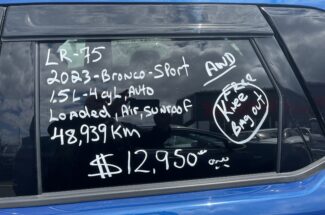 LR-75
2023-Bronco-Sport
1.5L-4cyl, Auto
Loaded, Air, sunroof
48,939 Km
$12,950
AND
Knee
Bag out